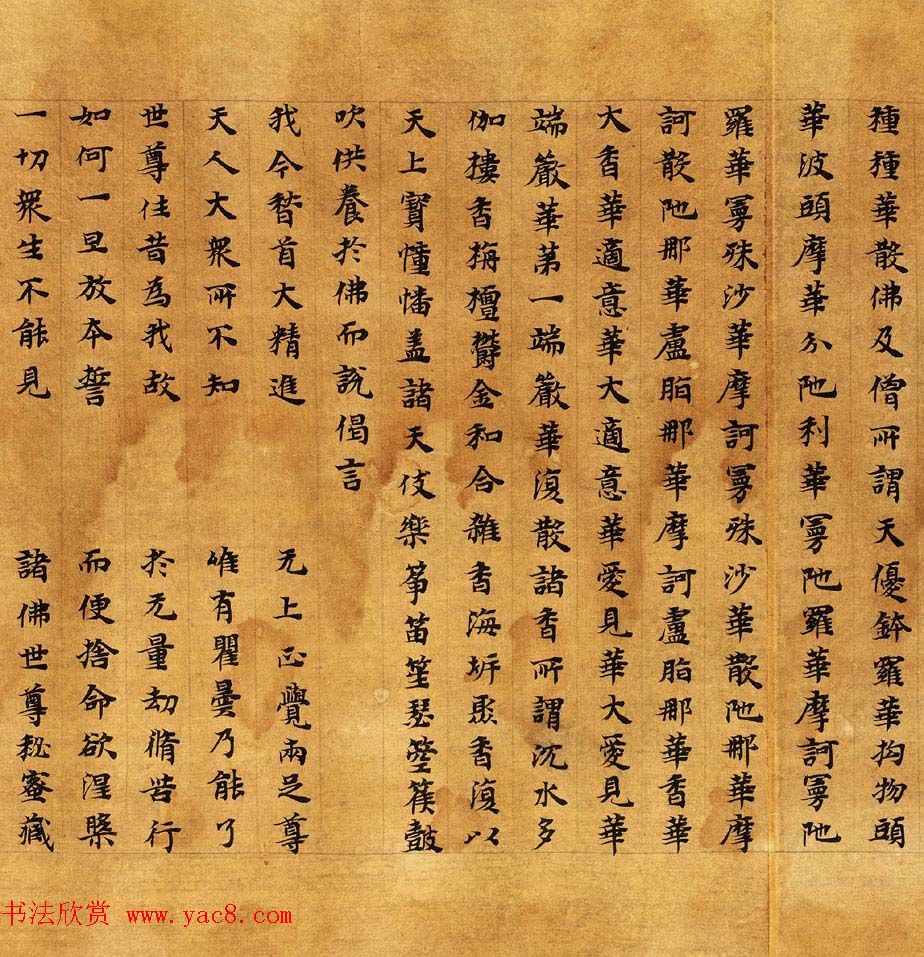 種種華散佛及僧所謂天優鉢羅華拘物頭
華波頭摩華分陁利華曼陁羅華摩訶曼陁
羅華曼殊沙華摩訶曼殊沙華散陁那華摩
訶散陁那華盧脂那華摩訶盧脂那華香華
大香華適意華大適意華愛見華大愛見華
端嚴華第一端嚴華復散諸香所謂沈水多
伽摟香栴檀欝金和合雜香海岓聚香復以
天上寳幢幡盖諸天伎樂筝笛笙瑟箜篌皷
吹供養扵佛而說偈言
我今稽首大精進 无上正覺兩足尊
天人大衆所不知 唯有瞿曇乃能了
世尊住昔為我故 扵无量劫脩苦行
如何一旦放本誓 而便捨命欲涅槃
一切衆生不能見 諸佛世尊秘蜜藏
书法欣赏 www.yac8.com